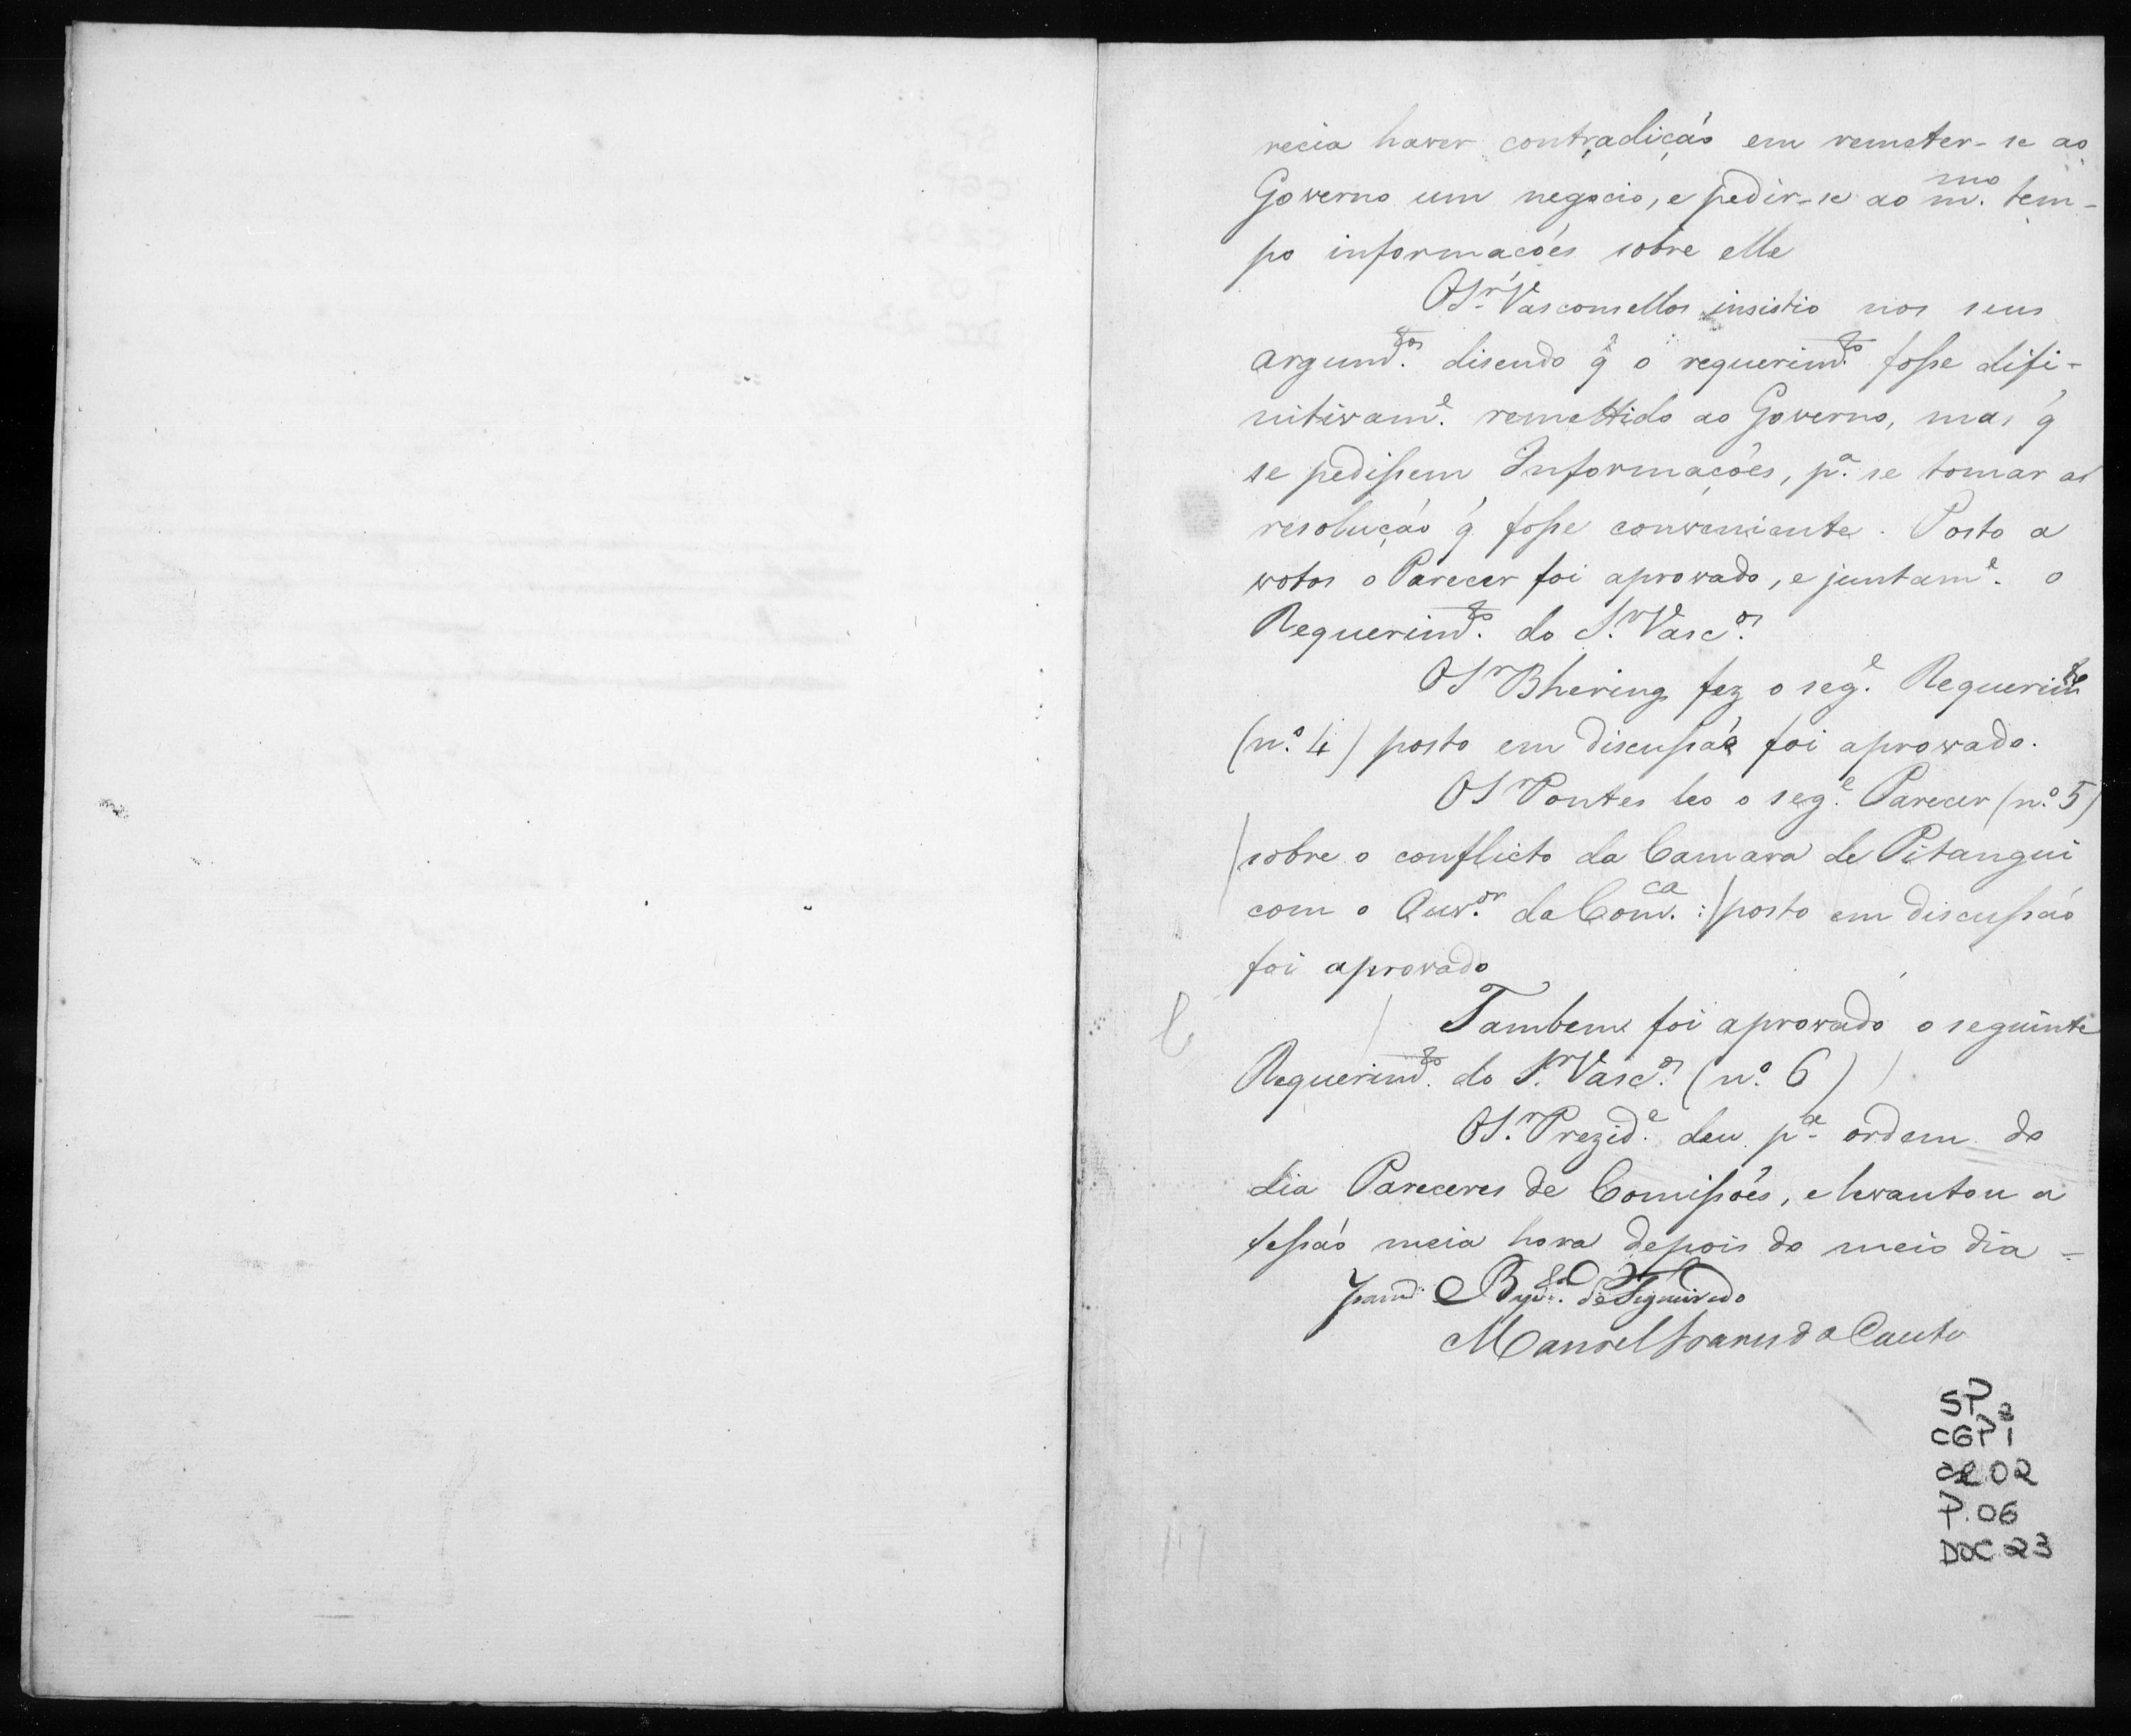 recia haver contradição em remeter-se ao
Governo um negocio, e pedir-se ao m.mo tem-
po informacóes sobre elle
O Sr. Vasconsellos insistio nos seus
argum.tos disendo q̃ o requerim.to foſse difi-
nitivam.e remettido ao Governo, mas q̃
se pediſsem Informações, p.a se tomar as
resolução q̃ foſse conveniente. Posto a
votos o Parecer foi aprovado, e juntam.e o
Requerim.to do S.r Vasc.os
O Sr Bhering fez o seg.e Requerim.to
(n.o 4) posto em discuſsáo foi aprovado.
O Sr Pontes leo o seg.e Parecer (n.o 5)
sobre o conflicto da Camara de Pitangui
com o Ouv.or da Com.ca :/ posto em discuſsáo
foi aprovado
Tambem foi aprovado o seguinte
Requerim.to do S.r Vasc.os (n.o 6)
O S.r Prezid.e deu p.a ordem do
dia Pareceres de Comiſsóes, e levantou a
seſsáo meia hora depois do meio dia -
de Figueiredo
Manoel Soares do Couto
SP
CGP 1
cx 02
P. 06
DOC 23